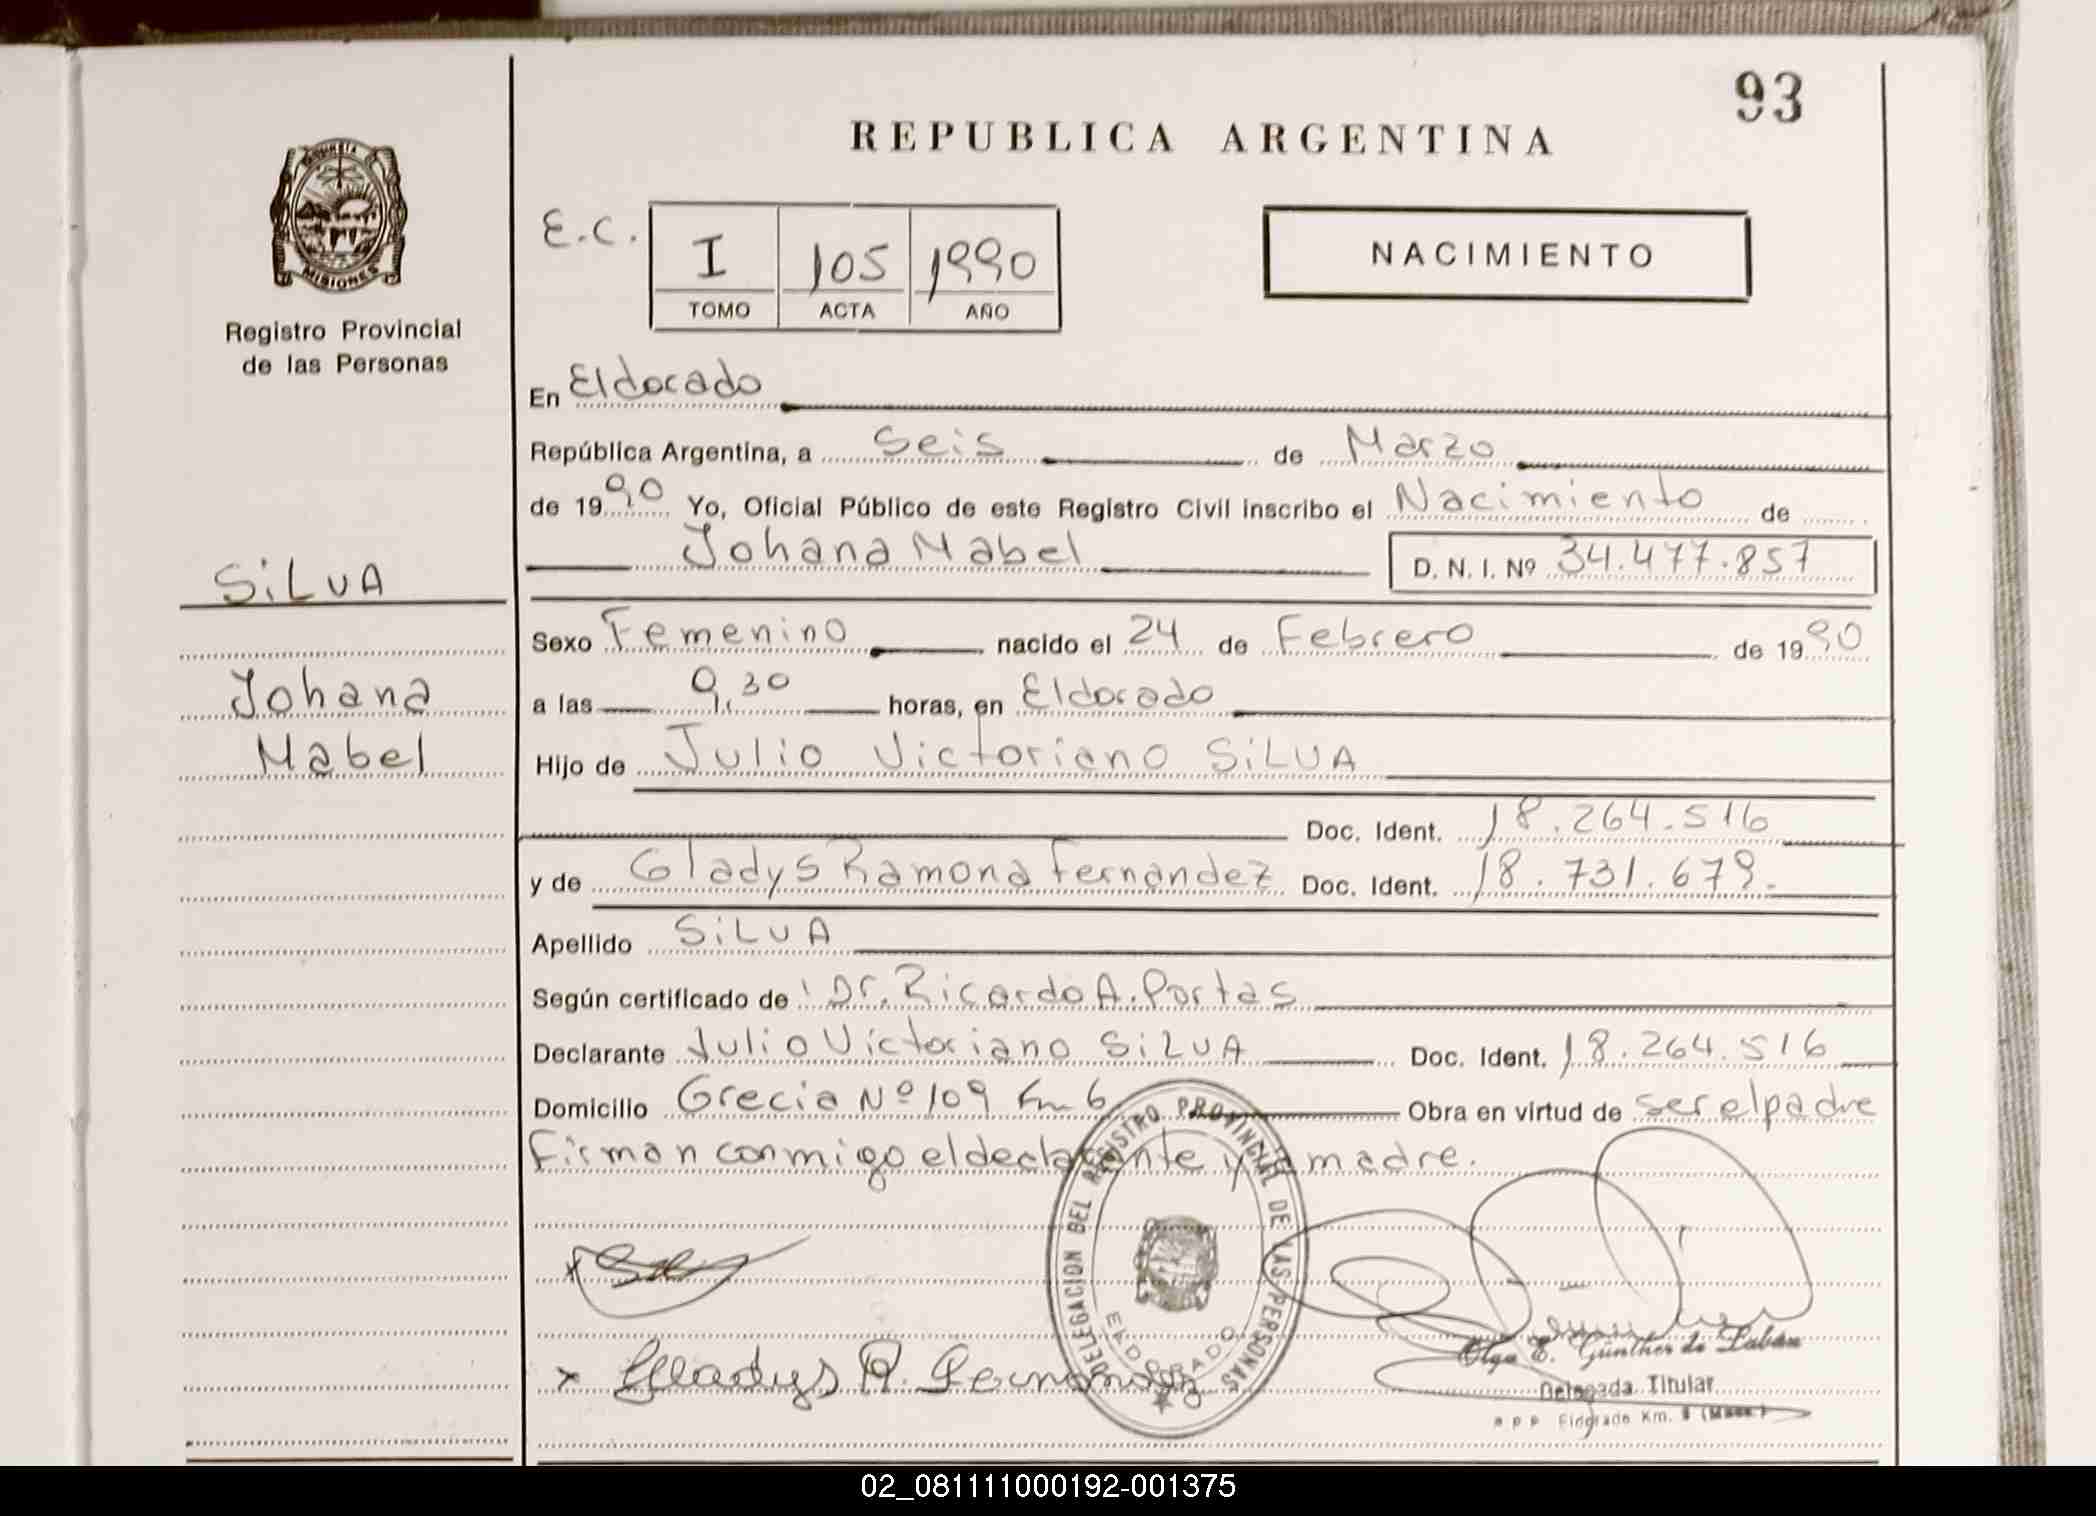 93
REPUBLICA ARGENTINA
PROVINCIA
MISIONES
Registro Provincial
de las Personas
E.C.
I 105 1990
TOMO ACTA AÑO
NACIMIENTO
En Eldorado
República Argentina, a Seis de Marzo
de 1990 Yo, Oficial Público de este Registro Civil inscribo el Nacimiento de
Johana Mabel D. N. I. Nº 34.477.857
SiLVA
Johana
Mabel
Sexo Femenino nacido el 24 de Febrero de 1990
a las 9,30 horas, en Eldorado
Hijo de Julio Victoriano SiLVA
Doc. Ident. 18.264.516
y de Gladys Ramona Fernandez Doc. Ident. 18.731.679.
Apellido SiLVA
Según certificado de Dr. Ricardo A. Portas
Declarante Julio Victoriano SiLVA Doc. Ident. 18.264.516
Domicilio Grecia Nº 109 Km 6 Obra en virtud de ser el padre
Firman conmigo el declarante y la madre.
DELEGACION DEL REGISTRO PROVINCIAL DE LAS PERSONAS
ELDORADO
Gladys R. Fernandez
Olga E. Günther de Laban
Delegada Titular
Eldorado Km.
02_081111000192-001375